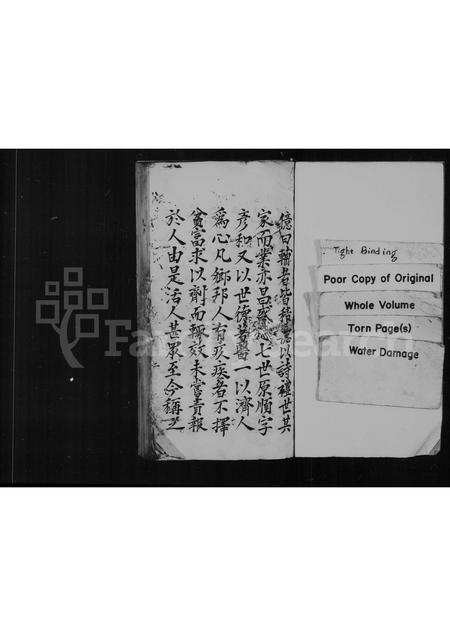 億曰翰者皆積以詩禮世其
家而業亦昌盛七世原順字
彥和又以世德著醫一以濟人
為心凡鄉邦人有疾者不擇
貧富求以劑而輒效未嘗責報
於人由是活人甚眾至今稱之
Tight Binding
Poor Copy of Original
Whole Volume
Torn Page(s)
Water Damage
FamilySearch